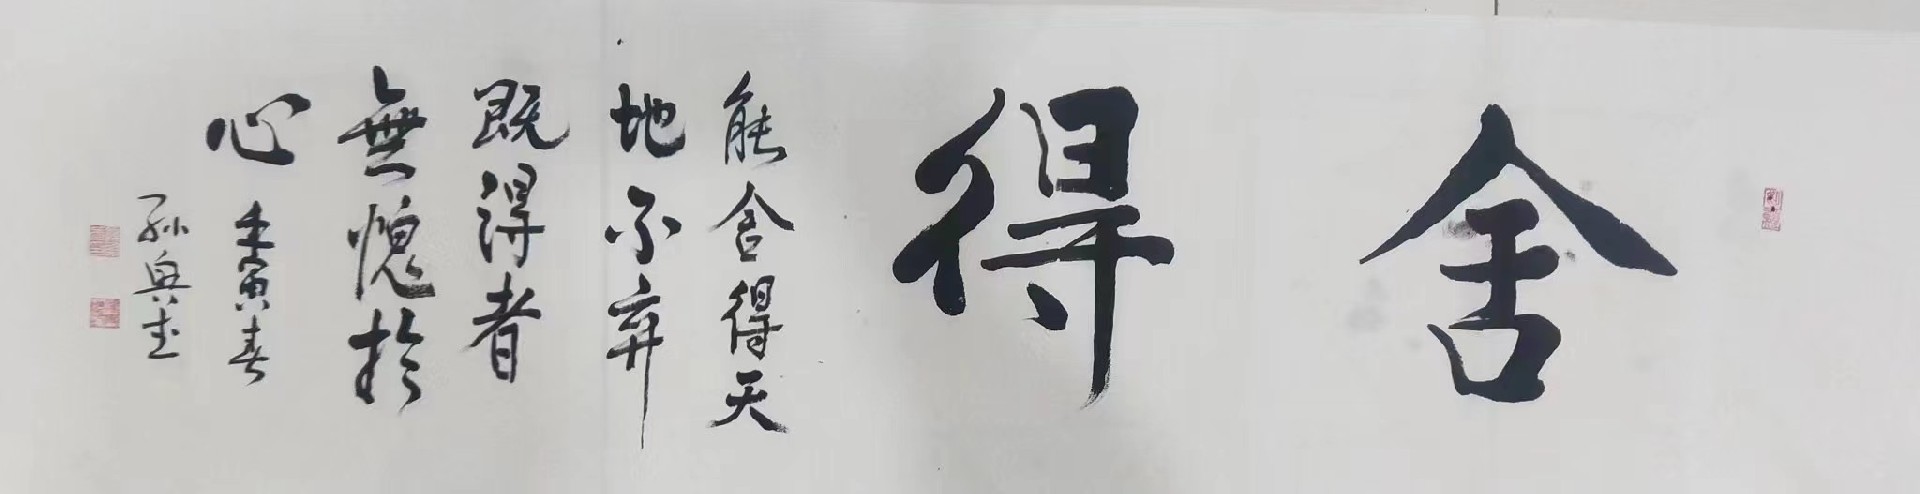 舍得
能舍得天
地不弃
既得者
無愧於
心 壬寅春
孙